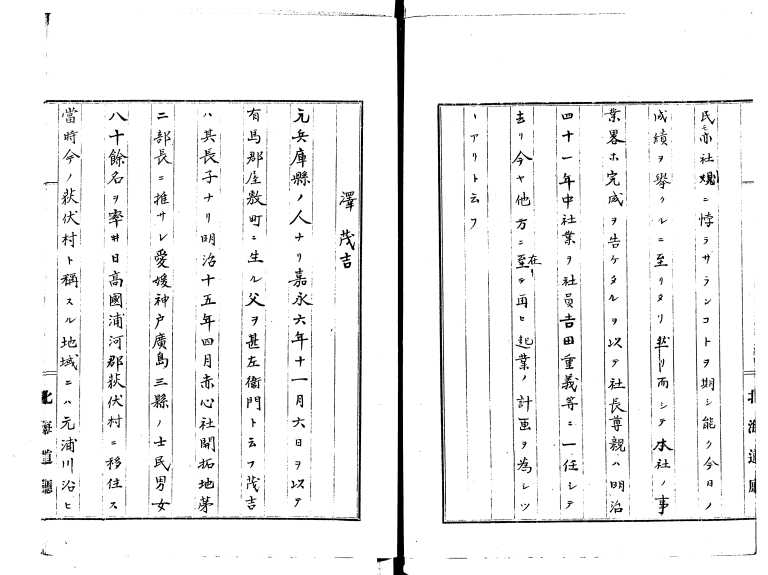 民ニ亦社規ニ悖ラサランコトヲ期シ能ク今日ノ
成績ヲ擧クルニ至リタリ然リ而シテ本社ノ事
業畧ホ完成ヲ告ケタルヲ以テ社長尊親ハ明治
四十一年中社業ヲ社員吉田重義等ニ一任シテ
去リ今ヤ他方ニ在リテ再ヒ起業ノ計画ヲ為シツ
ヽアリト云フ
北海道廳
澤茂吉
元兵庫縣ノ人ナリ嘉永六年十一月六日ヲ以テ
有馬郡屋敷町ニ生ル父ヲ甚左衞門ト云フ茂吉
ハ其長子ナリ明治十五年四月赤心社開拓地第
二部長ニ推サレ愛媛神戸廣島三縣ノ士民男女
八十餘名ヲ率ヰ日高國浦河郡荻伏村ニ移住ス
當時今ノ荻伏村ト稱スル地域ニハ元浦川沿ヒ
北海道廳